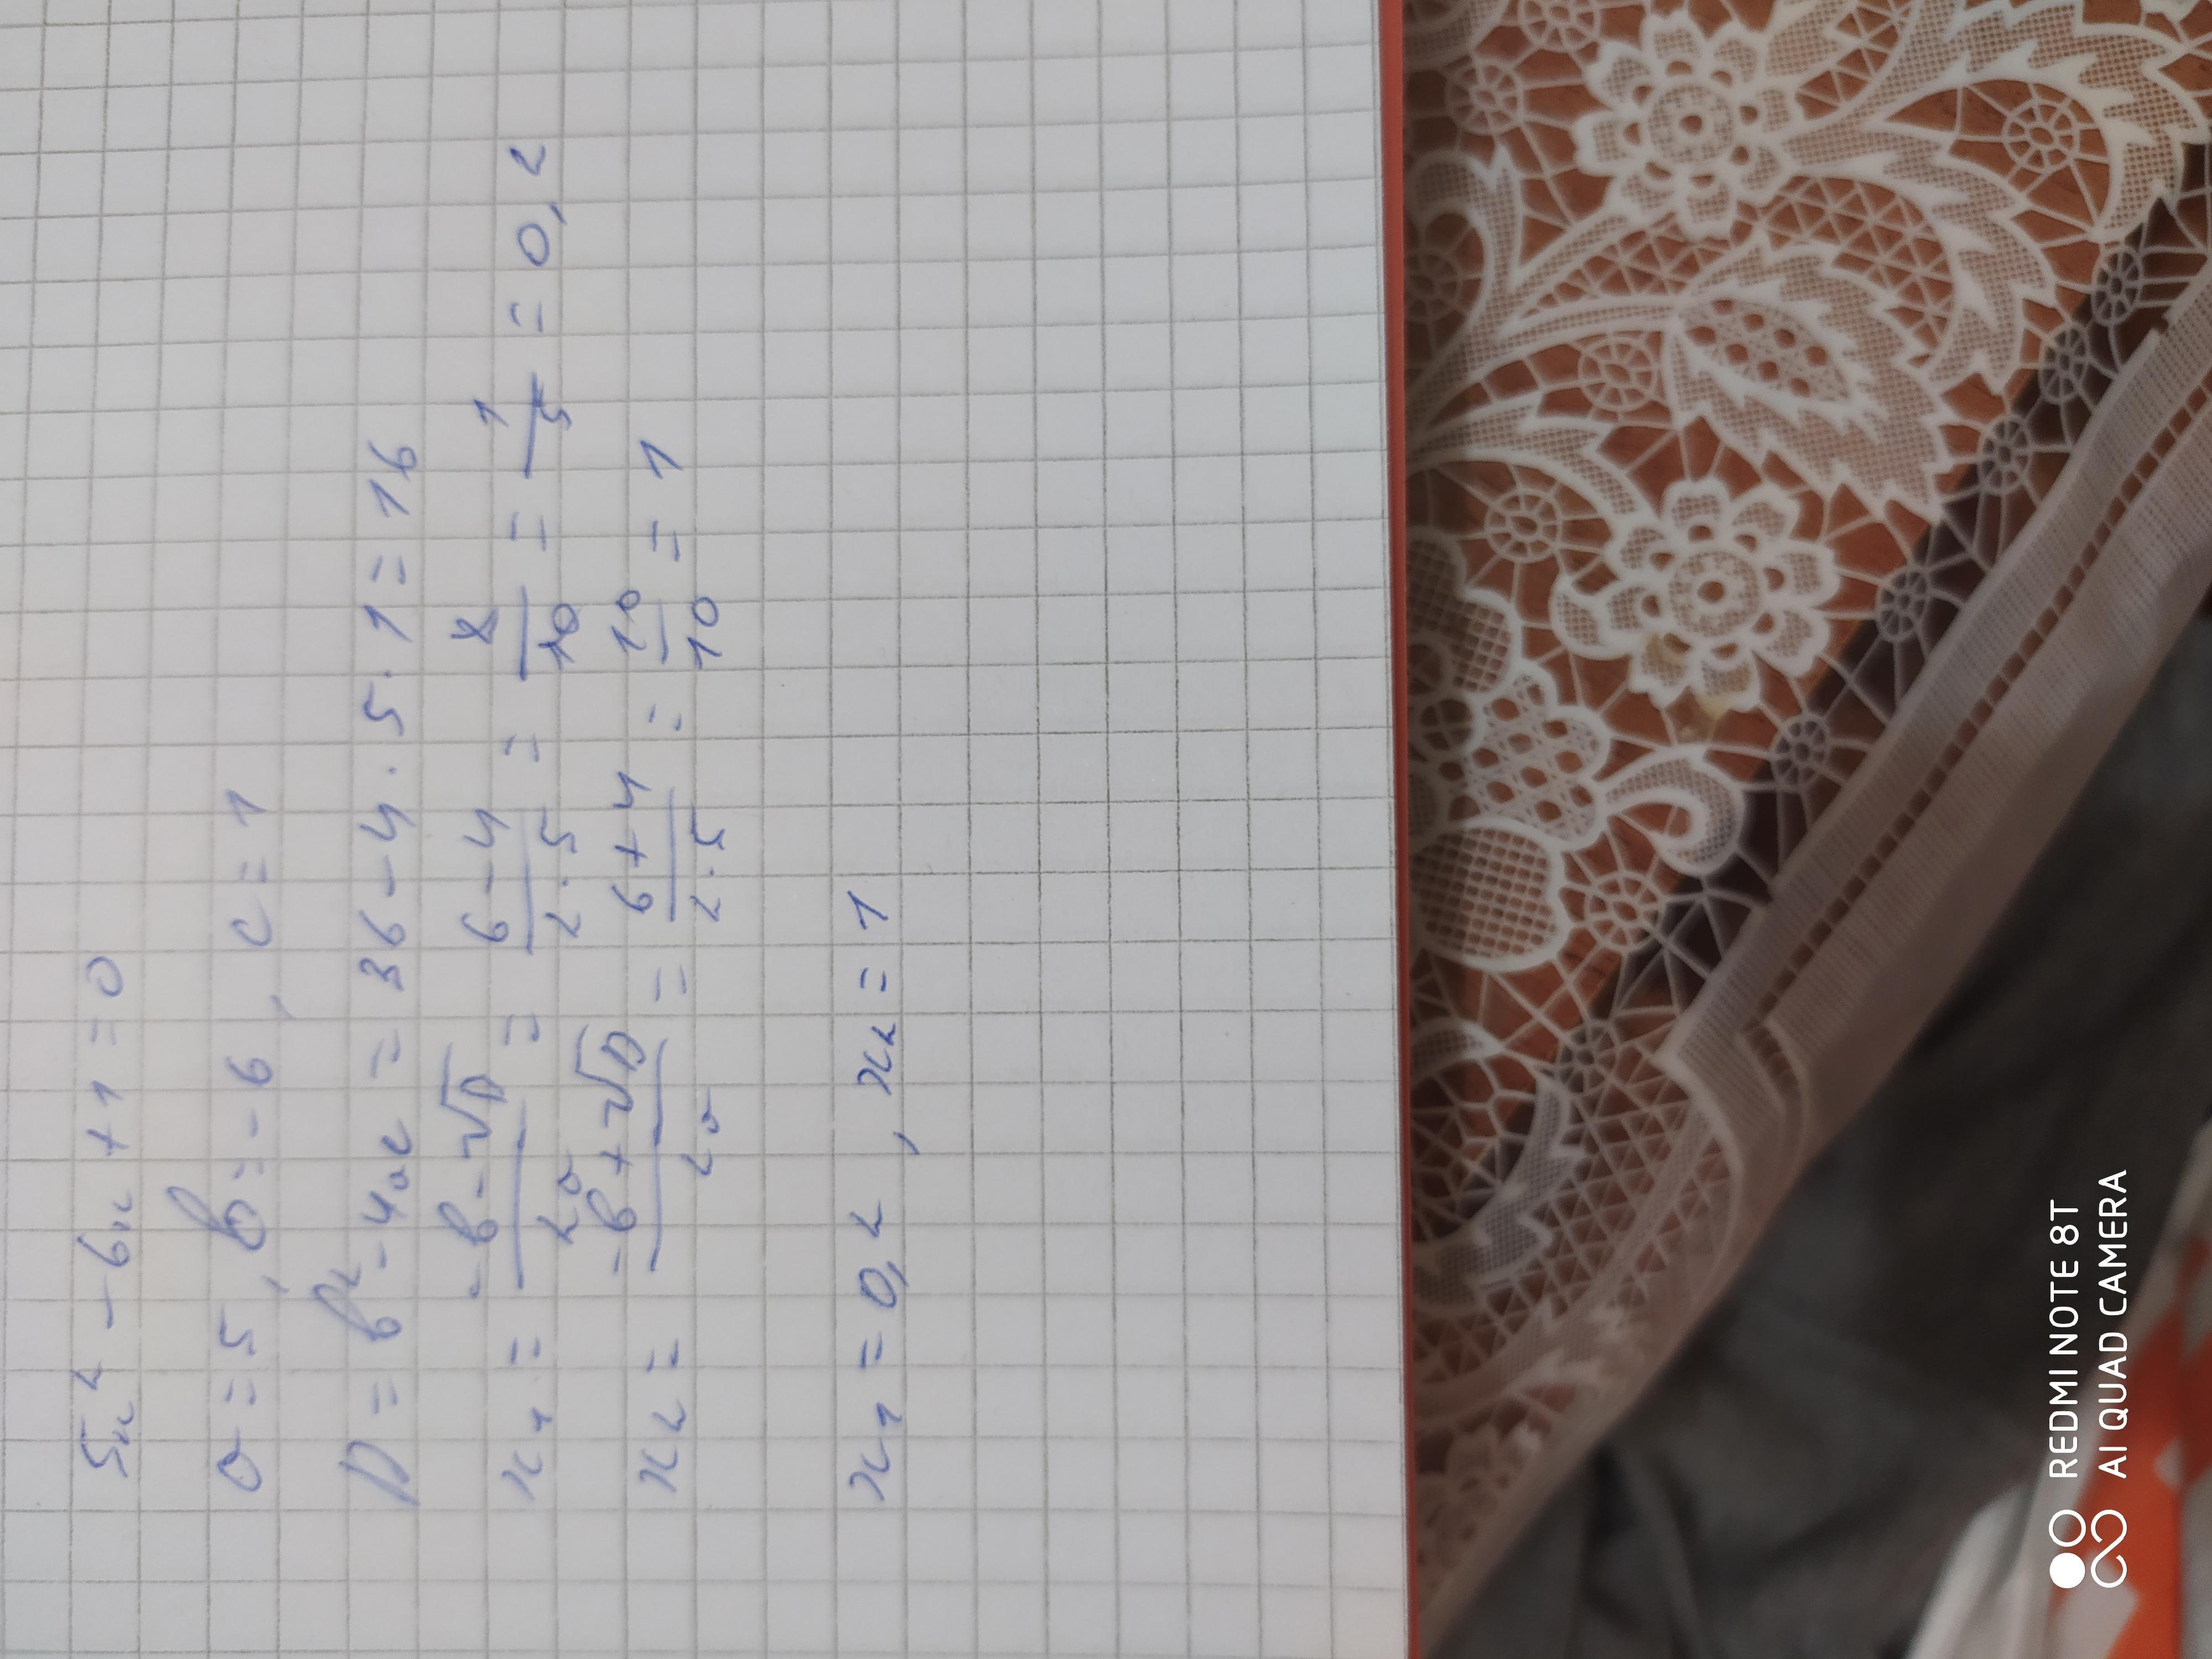 5x² - 6x + 1 = 0
a = 5, b = -6, c = 1
D = b² - 4ac = 36 - 4 · 5 · 1 = 16
x₁ = (-b - √D)/(2a) = (6 - 4)/(2 · 5) = 2/10 = 1/5 = 0,2
x₂ = (-b + √D)/(2a) = (6 + 4)/(2 · 5) = 10/10 = 1
x₁ = 0,2, x₂ = 1
REDMI NOTE 8T
AI QUAD CAMERA